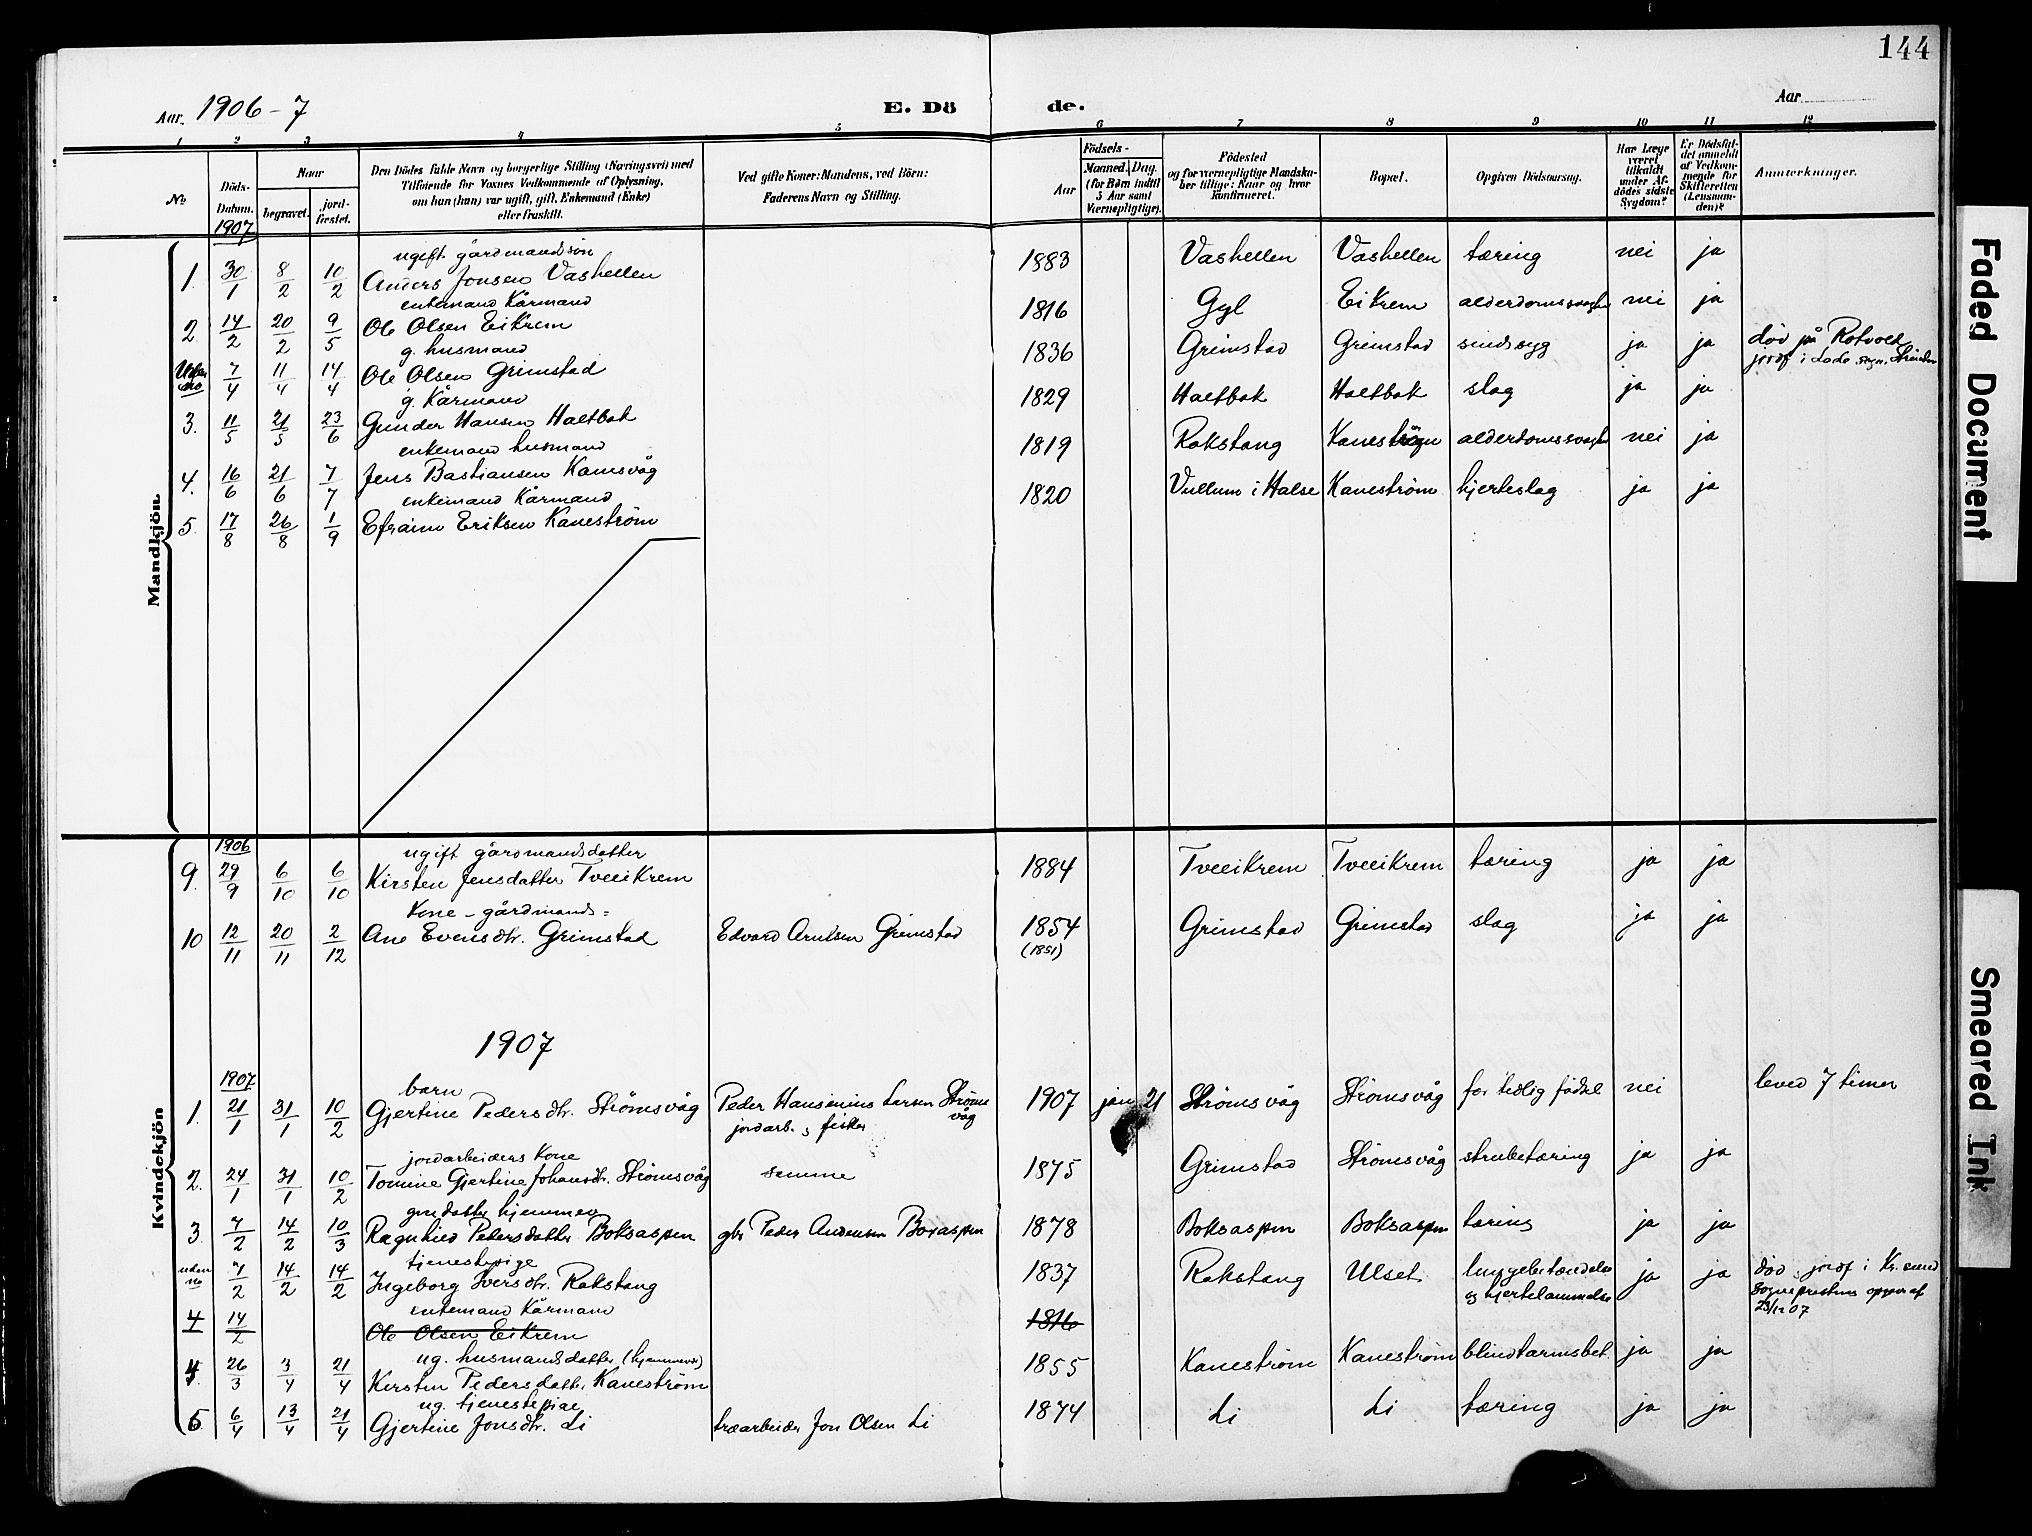 144
Aar. 1906-7 E. Dö de. Aar
1 2 3 4 5 6 7 8 9 10 11 12
No Döds-Datum. Naar begravet. jord-fæstet. Den Dödes fulde Navn og borgerlige Stilling (Næringsvei) med Tilföiende for Voxnes Vedkommende af Oplysning, om han (hun) var ugift, gift, Enkemand (Enke) eller fraskilt. Ved gifte Koner: Mandens, ved Börn: Faderens Navn og Stilling. Födsels- Aar Maaned. Dag. (for Börn indtil 5 Aar samt Værnepligtige). Födested og for værnepligtige Mandskaber tillige: Naar og hvor konfirmeret. Bopæl. Opgiven Dödsaarsag. Har Læge været tilkaldt under Afdödes sidste Sygdom? Er Dödsfaldet anmeldt af Vedkommende for Skifteretten (Lensmanden)? Anmerkninger.
1907
Mandkjön
ugift gårdmandssön
1. 30/1 8/2 10/2 Anders Jonsen Vashellen 1883 Vashellen Vashellen tæring nei ja
enkemand Kårmand
2. 14/2 20/2 9/5 Ole Olsen Eikrem 1816 Gyl Eikrem nei ja
g. husmand
Uden no 7/4 11/4 14/4 Ole Olsen Grimstad 1836 Grimstad Grimstad sindssyg ja ja död på Rotvold
jordf i Lade sogn.
g. Kårmand
3. 11/5 21/5 23/6 Gunder Hansen Holtbak 1829 Holtbak Holtbak slag ja ja
enkemand husmand
4. 16/6 21/6 7/7 Jens Bastiansen Kanesvåg 1819 Rokstang nei ja
enkemand Kårmand
5 17/8 26/8 1/9 Efraim Eriksen Kaneström 1820 Vullum i Halse Kaneström hjerteslag ja ja
Kvindekjön
1906
ugift gårdmandsdatter
9. 29/9 6/10 6/10 Kirsten Jensdatter Tveeikrem 1884 Tveeikrem Tveeikrem tæring ja ja
Kone - gårdmands =
10 12/11 20/11 2/12 Ane Evensdtr. Grimstad Edvard Arntsen Grimstad 1854 Grimstad Grimstad slag ja ja
(1851)
1907
1907
barn
1. 21/1 31/1 10/2 Gjertine Pedersdtr. Strömsvåg Peder Hansinius Larsen Ströms våg 1907 jan 21 Strömsvåg Strömsvåg for tidlig födsel nei leved 7 timer
jordarb. & fisker
jordarbeiders Kone
2. 24/1 31/1 10/2 Tomine Gjertine Johansdtr. Strömsvåg samme 1875 Grimstad Strömsvåg strubetæring ja ja
gmdatter hjemmev
3. 7/2 14/2 10/3 Ragnhild Pedersdatter Boksaspen gbr Peder Andersen Boxaspen 1878 Boksaspen Boksaspen tæring ja ja
tjenestepige
uden no 7/2 14/2 14/2 Ingeborg Iversdtr. Rokstang 1837 Rokstang Ulset lungebetændelse ja ja död & jordf i Kr.sund
og hjertelammelse Sogneprestens opgave af
23/12 07
enkemand Kårmand
4 14/2 Ole Olsen Eikrem 1816
ug. husmandsdatter (hjemmevd)
4. 26/3 3/4 21/4 Kirsten Pedersdatter Kaneström 1855 Kaneström Kaneström blindtarmsbet. ja ja
ug. tjenestepige
5. 6/4 13/4 21/4 Gjertine Jonsdtr. Li træarbeider Jon Olsen Li 1874 Li Li tæring ja ja
Faded Document
Smeared Ink